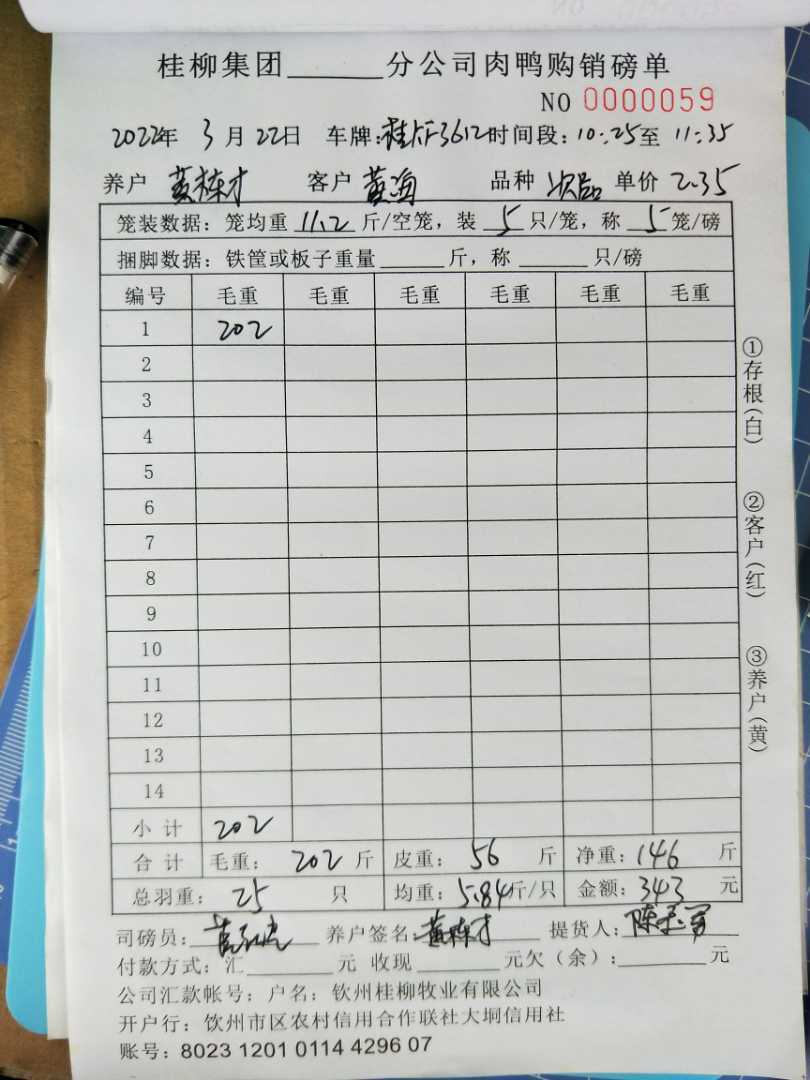 桂柳集团______分公司肉鸭购销磅单
NO 0000059
2022年 3月22日 车牌:桂AF3612 时间段:10:25至 11:35
养户 黄栋才 客户 黄海 品种 次品 单价 2.35
笼装数据:笼均重 11.2 斤/空笼,装 5 只/笼,称 5 笼/磅
捆脚数据:铁筐或板子重量______斤,称______只/磅
编号 毛重 毛重 毛重 毛重 毛重 毛重
1 202
2
3
4
5
6
7
8
9
10
11
12
13
14
小计 202
合计 毛重: 202 斤 皮重: 56 斤 净重:146 斤
总羽重: 25 只 均重:5.84斤/只 金额:343 元
司磅员: 养户签名:黄栋才 提货人:
付款方式:汇______元 收现______元欠(余):______元
公司汇款帐号:户名:钦州桂柳牧业有限公司
开户行:饮州市区农村信用合作联社大垌信用社
账号:8023 1201 0114 4296 07
①存根(白)
②客户(红)
③养户(黄)